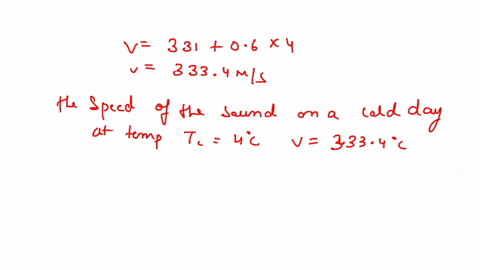 V = 331 + 0.6 × 4
v = 333.4 m/s
the speed of the sound on a cold day
at temp Tc = 4°C V = 333.4°C